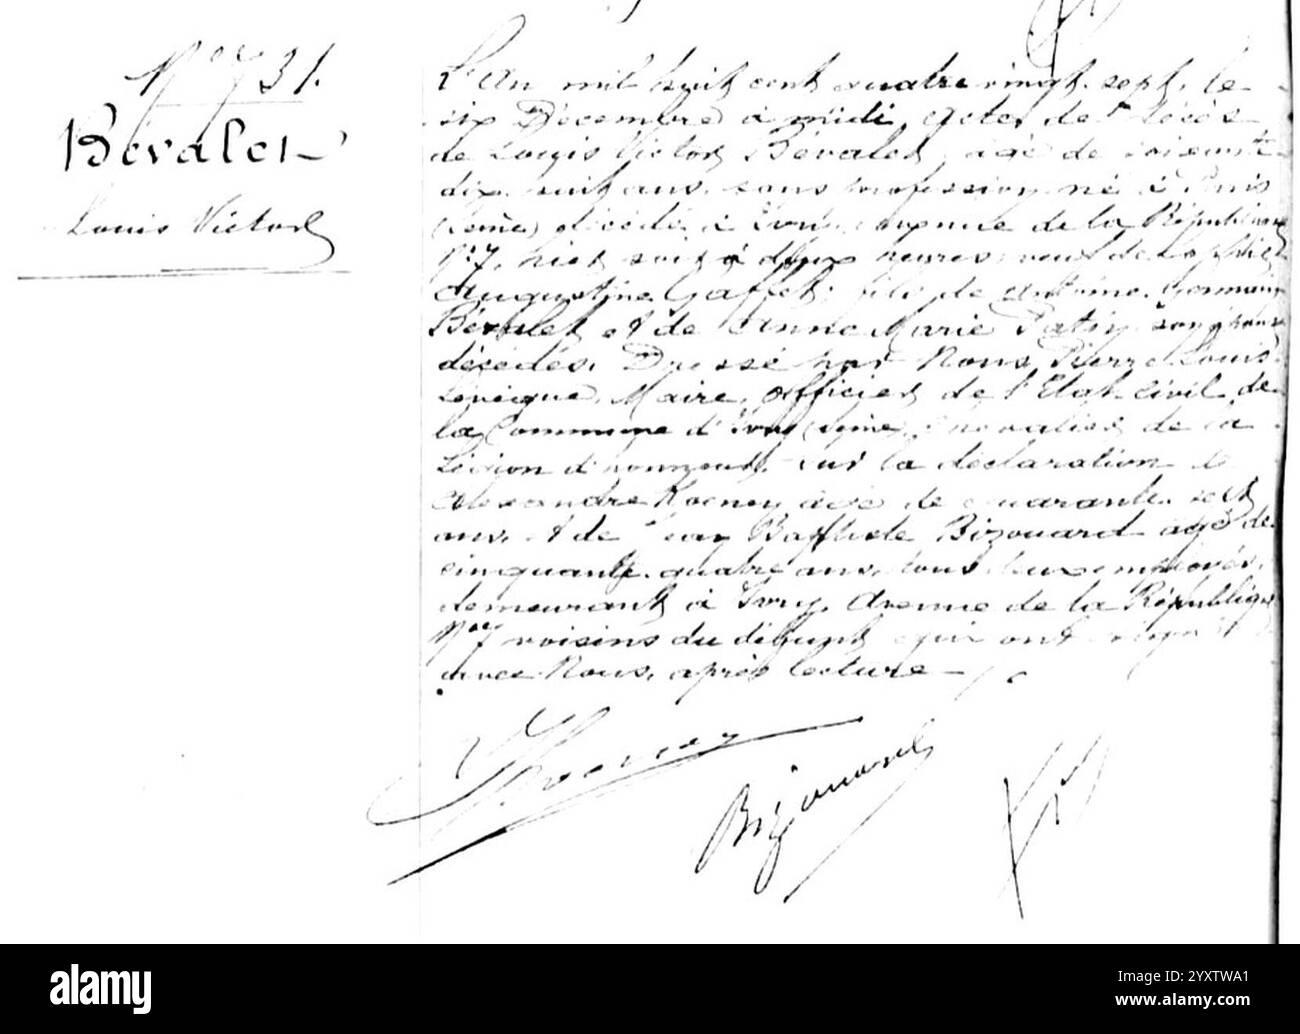 N° 731.
Bévalet
Louis Victor
L'An mil huit cent quatre vingt sept, le
six Décembre à midi, acte de décès
de Louis Victor Bévalet, âgé de soixante
dix huit ans, sans profession, né à Paris
(Seine) décédé à Ivry, avenue de la République
N° 7, hier soir à deux heures, veuf de
Augustine Gaffet; fils de Antoine Germain
Bévalet et de Anne Marie Patin, son épouse
décédés. Dressé par Nous, Pierre Louis
Maire, officier de l'Etat-Civil de
la Commune d'Ivry (Seine), Chevalier de la
Légion d'honneur, sur la déclaration de
Alexandre Rocney âgé de quarante sept
ans, et de Jean Baptiste Bizouard âgé de
cinquante quatre ans, tous deux employés,
demeurant à Ivry, Avenue de la République
N° 7 voisins du défunt, qui ont signé
avec Nous, après lecture
Bizouard
alamy
Image ID: 2YXTWA1
www.alamy.com